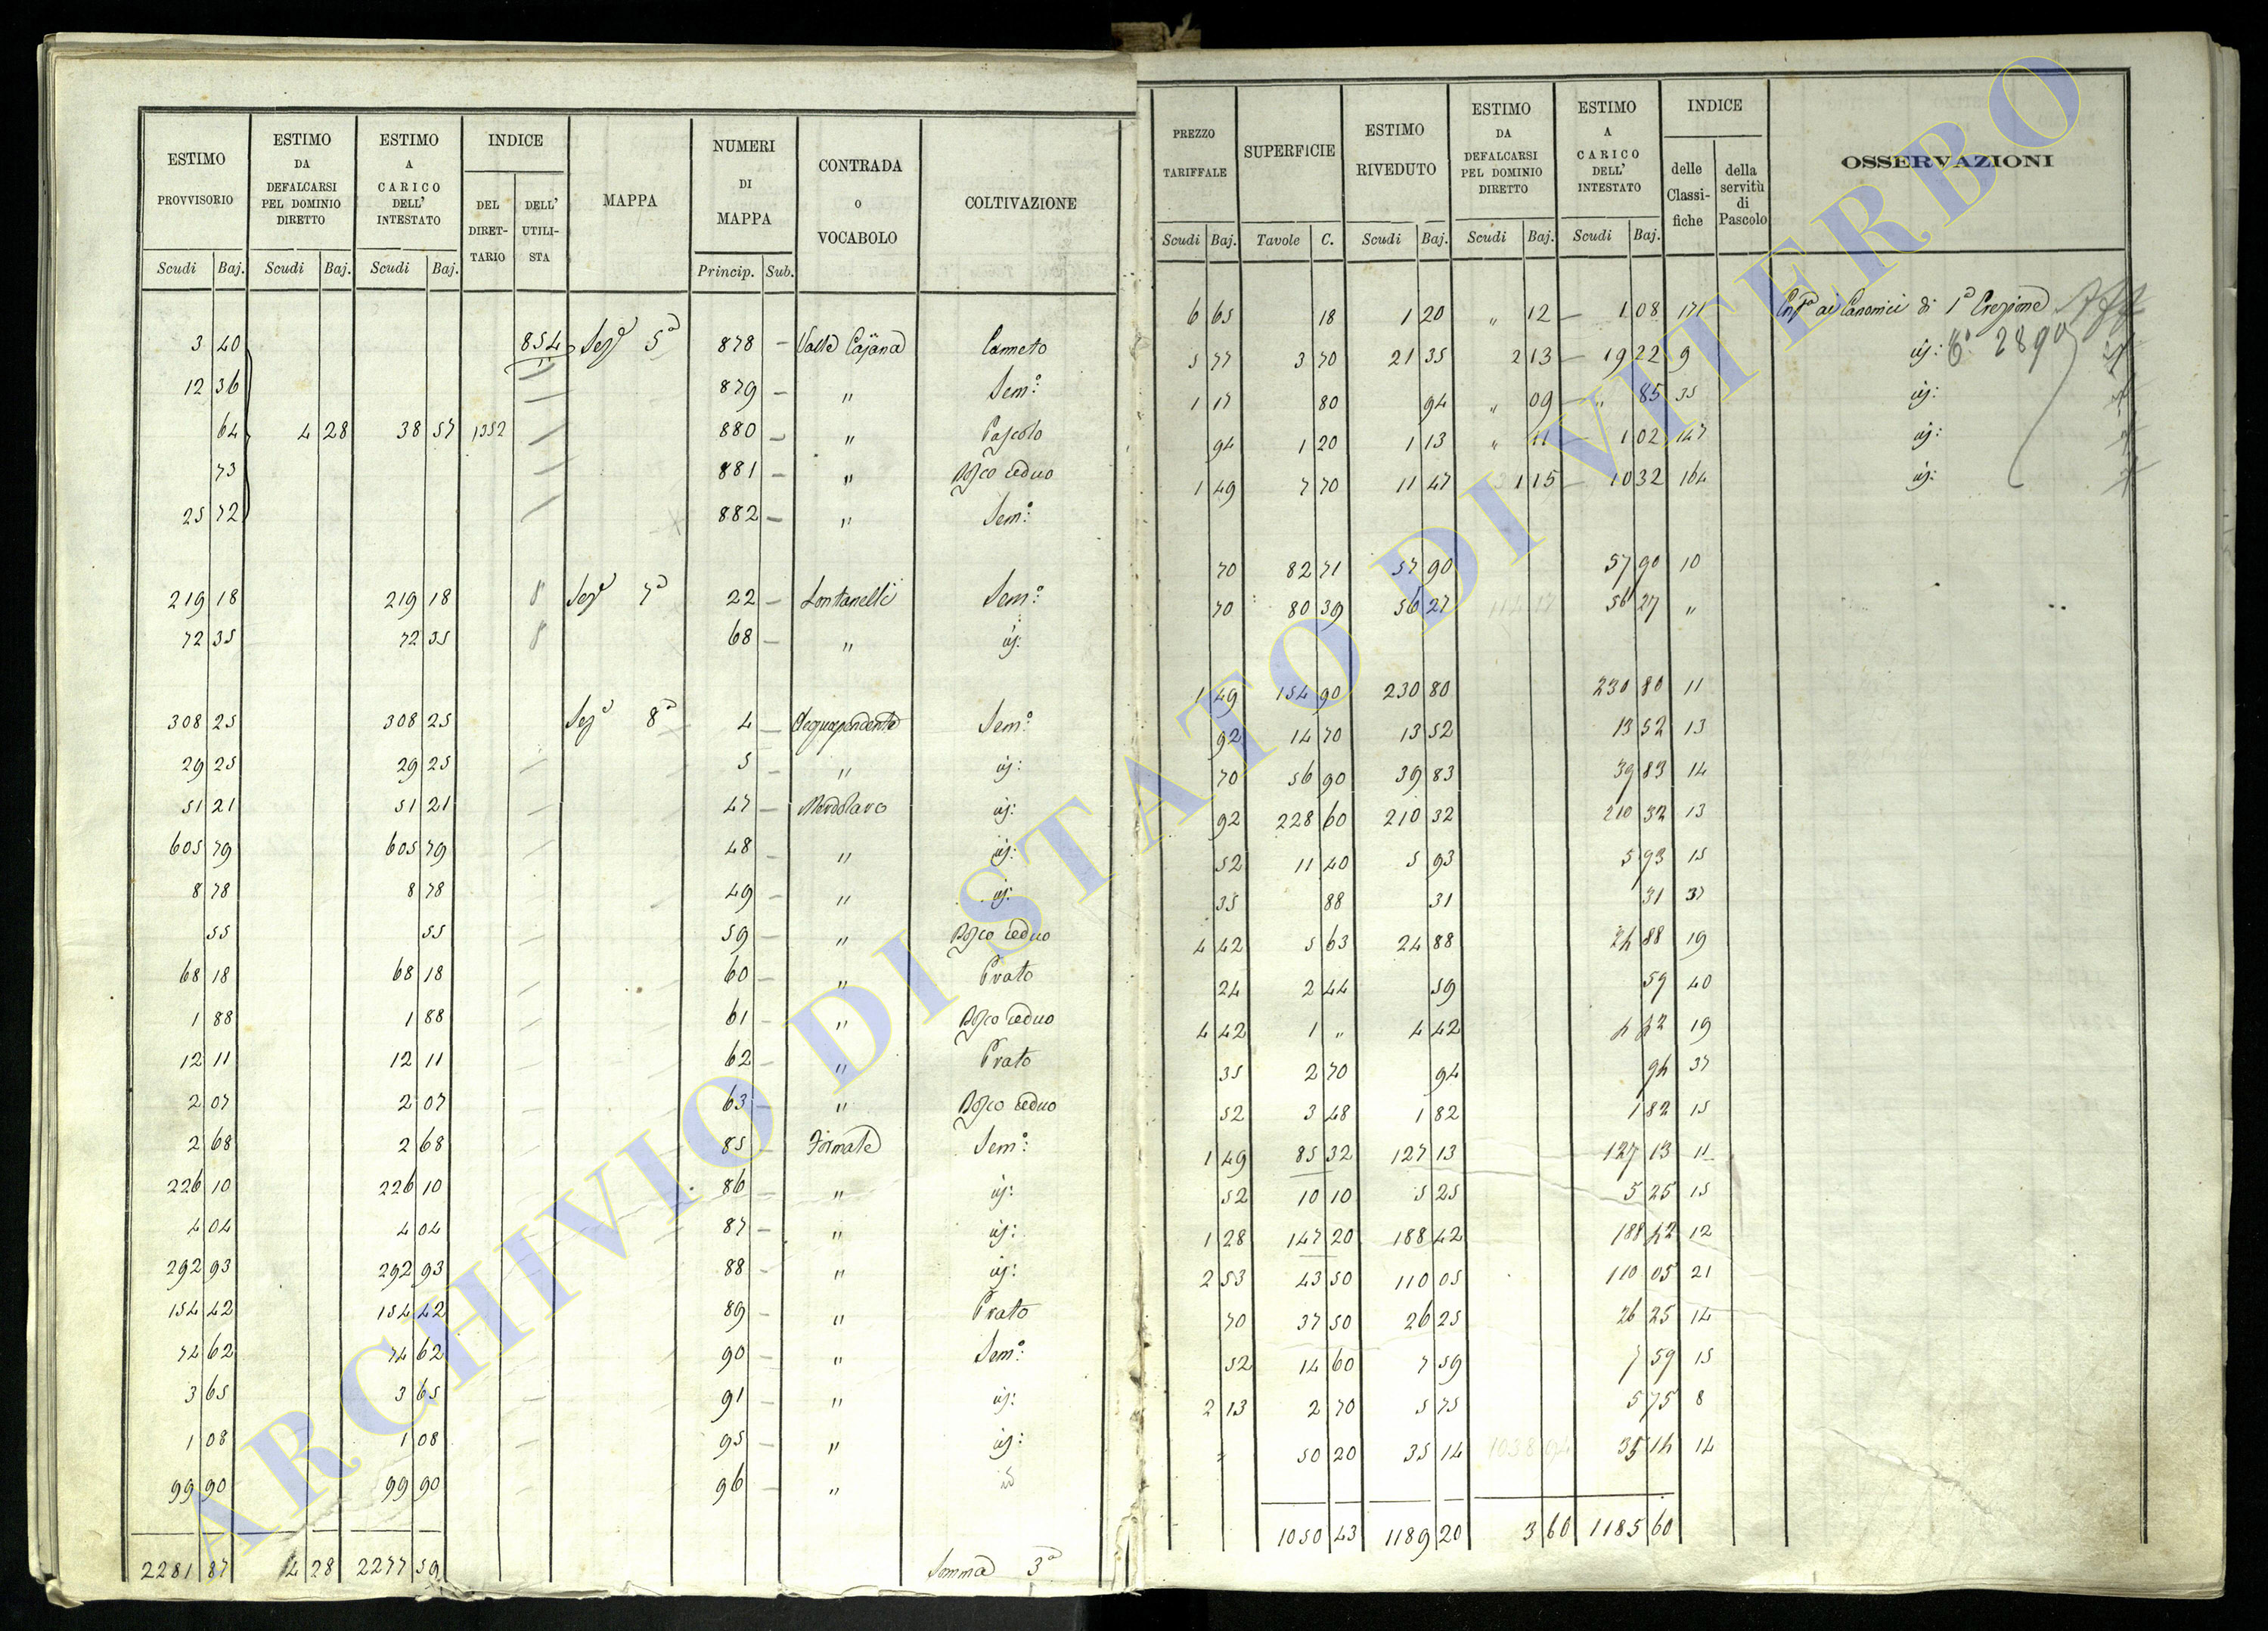 ESTIMO PROVVISORIO | ESTIMO DA DEFALCARSI PEL DOMINIO DIRETTO | ESTIMO A CARICO DELL' INTESTATO | INDICE | MAPPA | NUMERI DI MAPPA | CONTRADA O VOCABOLO | COLTIVAZIONE
DEL DIRETTARIO | DELL' UTILISTA
Scudi | Baj. | Scudi | Baj. | Scudi | Baj. | Princip. | Sub.
3 40 | 854 | Sezᵉ 5ᵃ | 878 – | Valle Cajana | Canneto
12 36 | 879 – | " | Sem:º
64 | 4 28 | 38 57 | 1352 | 880 – | " | Pascolo
73 | 881 – | " | Bosco ceduo
25 72 | 882 – | " | Sem:º
219 18 | 219 18 | 8 | Sezᵉ 7ᵃ | 22 – | Fontanelle | Sem:º
72 35 | 72 35 | 8 | 68 – | " | id:
308 25 | 308 25 | Sezᵉ 8ᵃ | 4 – | Acquapendente | Sem:º
29 25 | 29 25 | 5 – | " | id:
51 21 | 51 21 | 47 – | id:
605 79 | 605 79 | 48 – | " | id:
8 78 | 8 78 | 49 – | " | id:
55 | 55 | 59 – | " | Bosco ceduo
68 18 | 68 18 | 60 – | " | Prato
1 88 | 1 88 | 61 – | " | Bosco ceduo
12 11 | 12 11 | 62 – | " | Prato
2 07 | 2 07 | 63 – | " | Bosco ceduo
2 68 | 2 68 | 85 – | Formate | Sem:º
226 10 | 226 10 | 86 – | " | id:
4 04 | 4 04 | 87 – | " | id:
292 93 | 292 93 | 88 – | " | id:
154 42 | 154 42 | 89 – | " | Prato
74 62 | 74 62 | 90 – | " | Sem:º
3 65 | 3 65 | 91 – | " | id:
1 08 | 1 08 | 95 – | " | id:
99 90 | 99 90 | 96 – | " | id
2281 87 | 4 28 | 2277 59 | Somma 3ᵃ
PREZZO TARIFFALE | SUPERFICIE | ESTIMO RIVEDUTO | ESTIMO DA DEFALCARSI PEL DOMINIO DIRETTO | ESTIMO A CARICO DELL' INTESTATO | INDICE | OSSERVAZIONI
delle Classifiche | della servitù di Pascolo
Scudi | Baj. | Tavole | C. | Scudi | Baj. | Scudi | Baj. | Scudi | Baj.
6 65 | 18 | 1 20 | " 12 – | 1 08 | 171 | ai Canonici di 1ᵃ Erezione
5 77 | 3 70 | 21 35 | 2 13 – | 19 22 | 9 | id: 2890
1 17 | 80 | 94 | " 09 – | " 85 | 35 | id:
94 | 1 20 | 1 13 | " 11 – | 1 02 | 147 | id:
1 49 | 7 70 | 11 47 | 1 15 – | 10 32 | 164 | id:
70 | 82 71 | 57 90 | 57 90 | 10
70 | 80 39 | 56 27 | 56 27 | "
1 49 | 154 90 | 230 80 | 230 80 | 11
92 | 14 70 | 13 52 | 13 52 | 13
70 | 56 90 | 39 83 | 39 83 | 14
92 | 228 60 | 210 32 | 210 32 | 13
52 | 11 40 | 5 93 | 5 93 | 15
35 | 88 | 31 | 31 | 37
4 42 | 5 63 | 24 88 | 24 88 | 19
24 | 2 44 | 59 | 59 | 40
4 42 | 1 " | 4 42 | 4 42 | 19
35 | 2 70 | 94 | 94 | 37
52 | 3 48 | 1 82 | 1 82 | 15
1 49 | 85 32 | 127 13 | 127 13 | 11
52 | 10 10 | 5 25 | 5 25 | 15
1 28 | 147 20 | 188 42 | 188 42 | 12
2 53 | 43 50 | 110 05 | 110 05 | 21
70 | 37 50 | 26 25 | 26 25 | 14
52 | 14 60 | 7 59 | 7 59 | 15
2 13 | 2 70 | 5 75 | 5 75 | 8
50 20 | 35 14 | 35 14 | 14
1050 43 | 1189 20 | 3 60 | 1185 60
ARCHIVIO DI STATO DI VITERBO